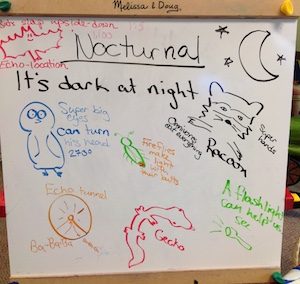 Melissa & Doug
upside-down
Nocturnal
Echo-location
It's dark at night
Super big
eyes
can turn
his head
270°
Fireflies
make
light
with
their butts
Omnivore
eat
everything
Racoon
Super
hands
Echo tunnel
Ba-Ba Ba
Gecko
A flashlight
can help us
see